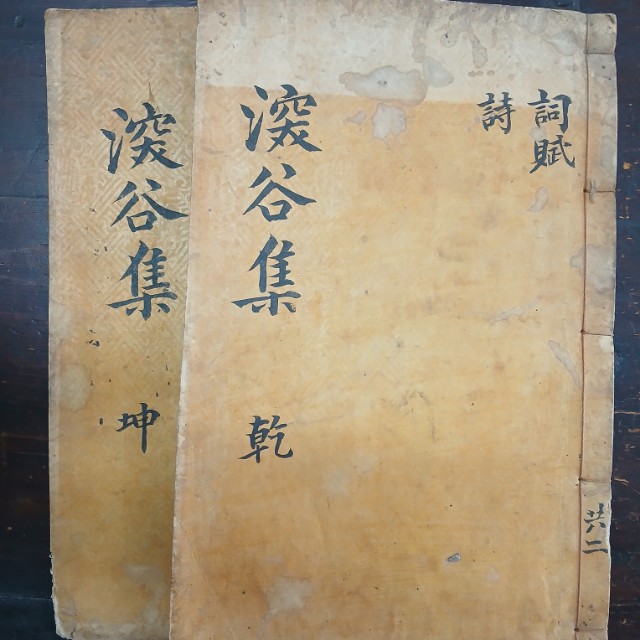 詞賦
詩
湥谷集 乾
共二
湥谷集 坤